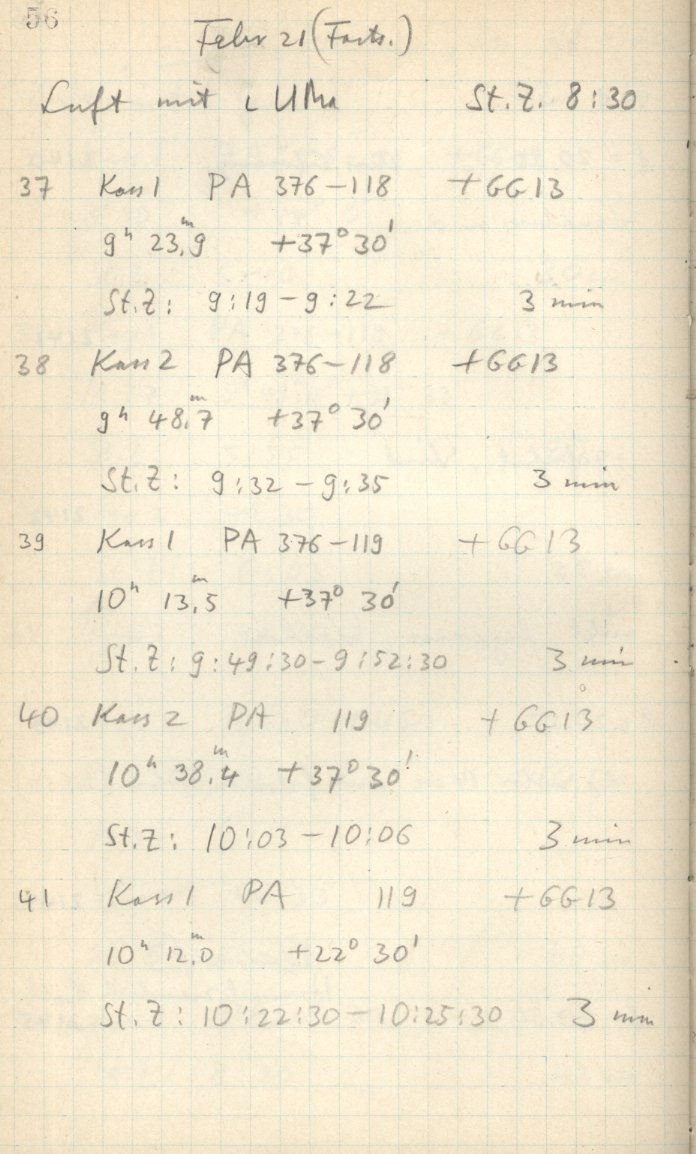 56
Febr 21 (Forts.)
Luft mit ι UMa St.Z. 8:30
37 Kass 1 PA 376-118 +GG13
9ʰ 23,ᵐ9 +37° 30'
St.Z: 9:19 - 9:22 3 min
38 Kass 2 PA 376-118 +GG13
9ʰ 48,ᵐ7 +37° 30'
St.Z: 9:32 - 9:35 3 min
39 Kass 1 PA 376-119 +GG13
10ʰ 13,ᵐ5 +37° 30'
St.Z: 9:49:30 - 9:52:30 3 min
40 Kass 2 PA 119 +GG13
10ʰ 38,ᵐ4 +37° 30'
St.Z: 10:03 - 10:06 3 min
41 Kass 1 PA 119 +GG13
10ʰ 12,ᵐ0 +22° 30'
St.Z: 10:22:30 - 10:25:30 3 min